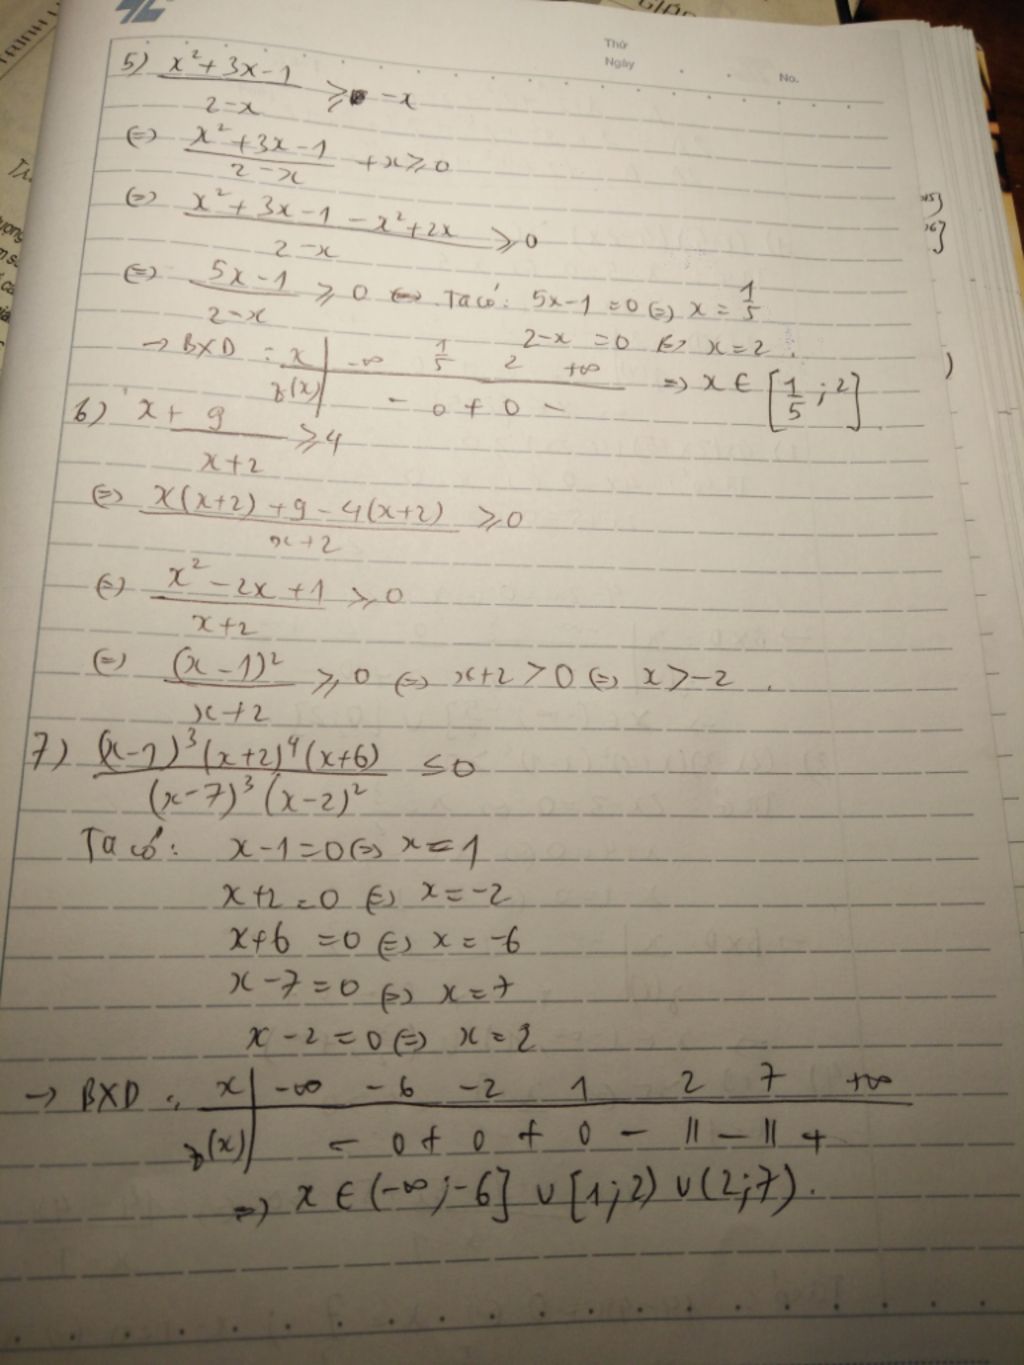 Thứ
Ngày
No.
5) (x² + 3x - 1)/(2 - x) ≥ -x
(=) (x² + 3x - 1)/(2 - x) + x ≥ 0
(=) (x² + 3x - 1 - x² + 2x)/(2 - x) ≥ 0
(=) (5x - 1)/(2 - x) ≥ 0 Ta có: 5x - 1 = 0 (=) x = 1/5
2 - x = 0 (=) x = 2.
→ BXD: x | -∞ 1/5 2 +∞
f(x) | - 0 + 0 - => x ∈ [1/5 ; 2].
6) x + 9/(x + 2) ≥ 4
(=) (x(x+2) + 9 - 4(x+2))/(x+2) ≥ 0
(=) (x² - 2x + 1)/(x+2) ≥ 0
(=) (x - 1)²/(x+2) ≥ 0 (=) x+2 > 0 (=) x > -2.
7) ((x-1)³(x+2)⁴(x+6))/((x-7)³(x-2)²) ≤ 0
Ta có: x - 1 = 0 (=) x = 1
x + 2 = 0 (=) x = -2
x + 6 = 0 (=) x = -6
x - 7 = 0 (=) x = 7
x - 2 = 0 (=) x = 2
→ BXD: x | -∞ -6 -2 1 2 7 +∞
f(x) | - 0 + 0 + 0 - || - || +
=> x ∈ (-∞; -6] ∪ [1; 2) ∪ (2; 7).